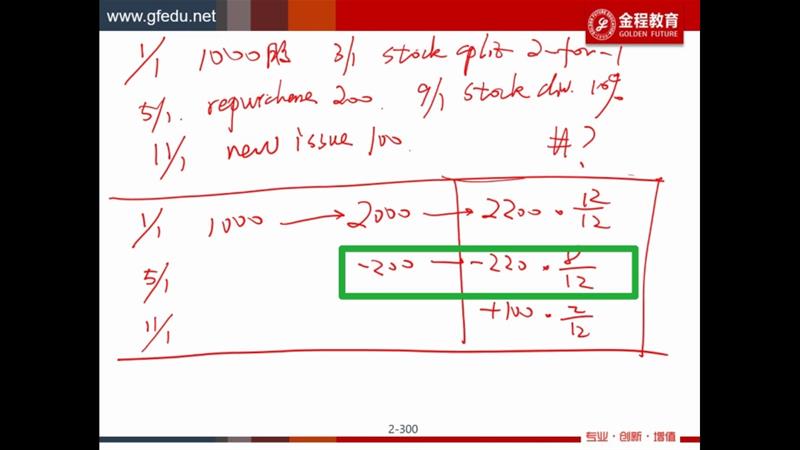 www.gfedu.net
金程教育
GOLDEN FUTURE
1/1 1000股 3/1 stock split 2-for-1
5/1. repurchase 200. 9/1 stock div. 10%
11/1 new issue 100. #?
1/1 1000 → 2000 → 2200 · 12/12
5/1 -200 → -220 · 8/12
11/1 +100 · 2/12
2-300
专业·创新·增值